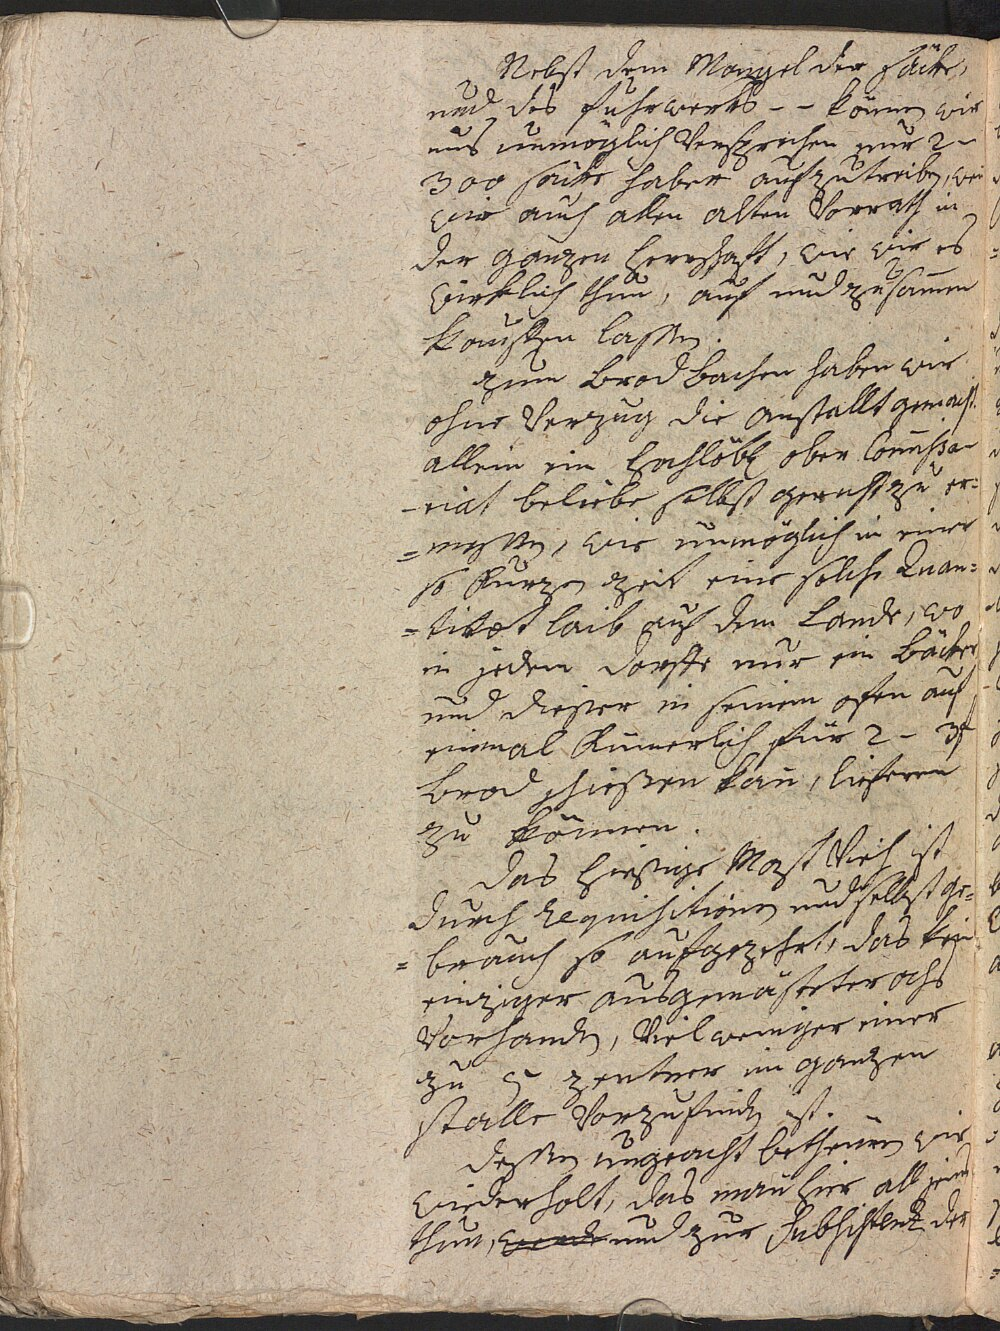 Nebst dem Mangel der säcke,
und des fuhrwerks -- können wir
uns unmöglich Versprechen nur 2-
300 säcke haber aufzutreiben, wen
wir auch allen alten Vorrath in
der ganzen herrschaft, wie wir es
wirklich thun, auf und zusamen
kauffen lassen.
zum Brod bachen haben wir
ohne Verzug die anstallt gemacht
allein ein hochlöbl ober Commissa-
-riat beliebe selbst gerechtzu er=
=messen, wie unmöglich in einer
so kurzen zeit eine solche Quan=
=titaet laib auf dem Lande, wo
in jedem dorffe nur ein Bäcker
und dieser in seinem ofen auf
einmal kümerlich für 2 - 3 f
Brod schiessen kan, lieferen
zu können.
das hiesige Mast Vieh ist
durch requisitionen und selbst ge=
=brauch so aufgezehrt, das kein
einziger ausgemästeter ochs
Vorhanden, Viel weniger einer
zu 5 zentner im ganzen
stalle Vorzufinden ist.
dessen ungeacht betheuren wir
wiederholt, das man hier all jenes
thun, werde und zur Subsistenz der